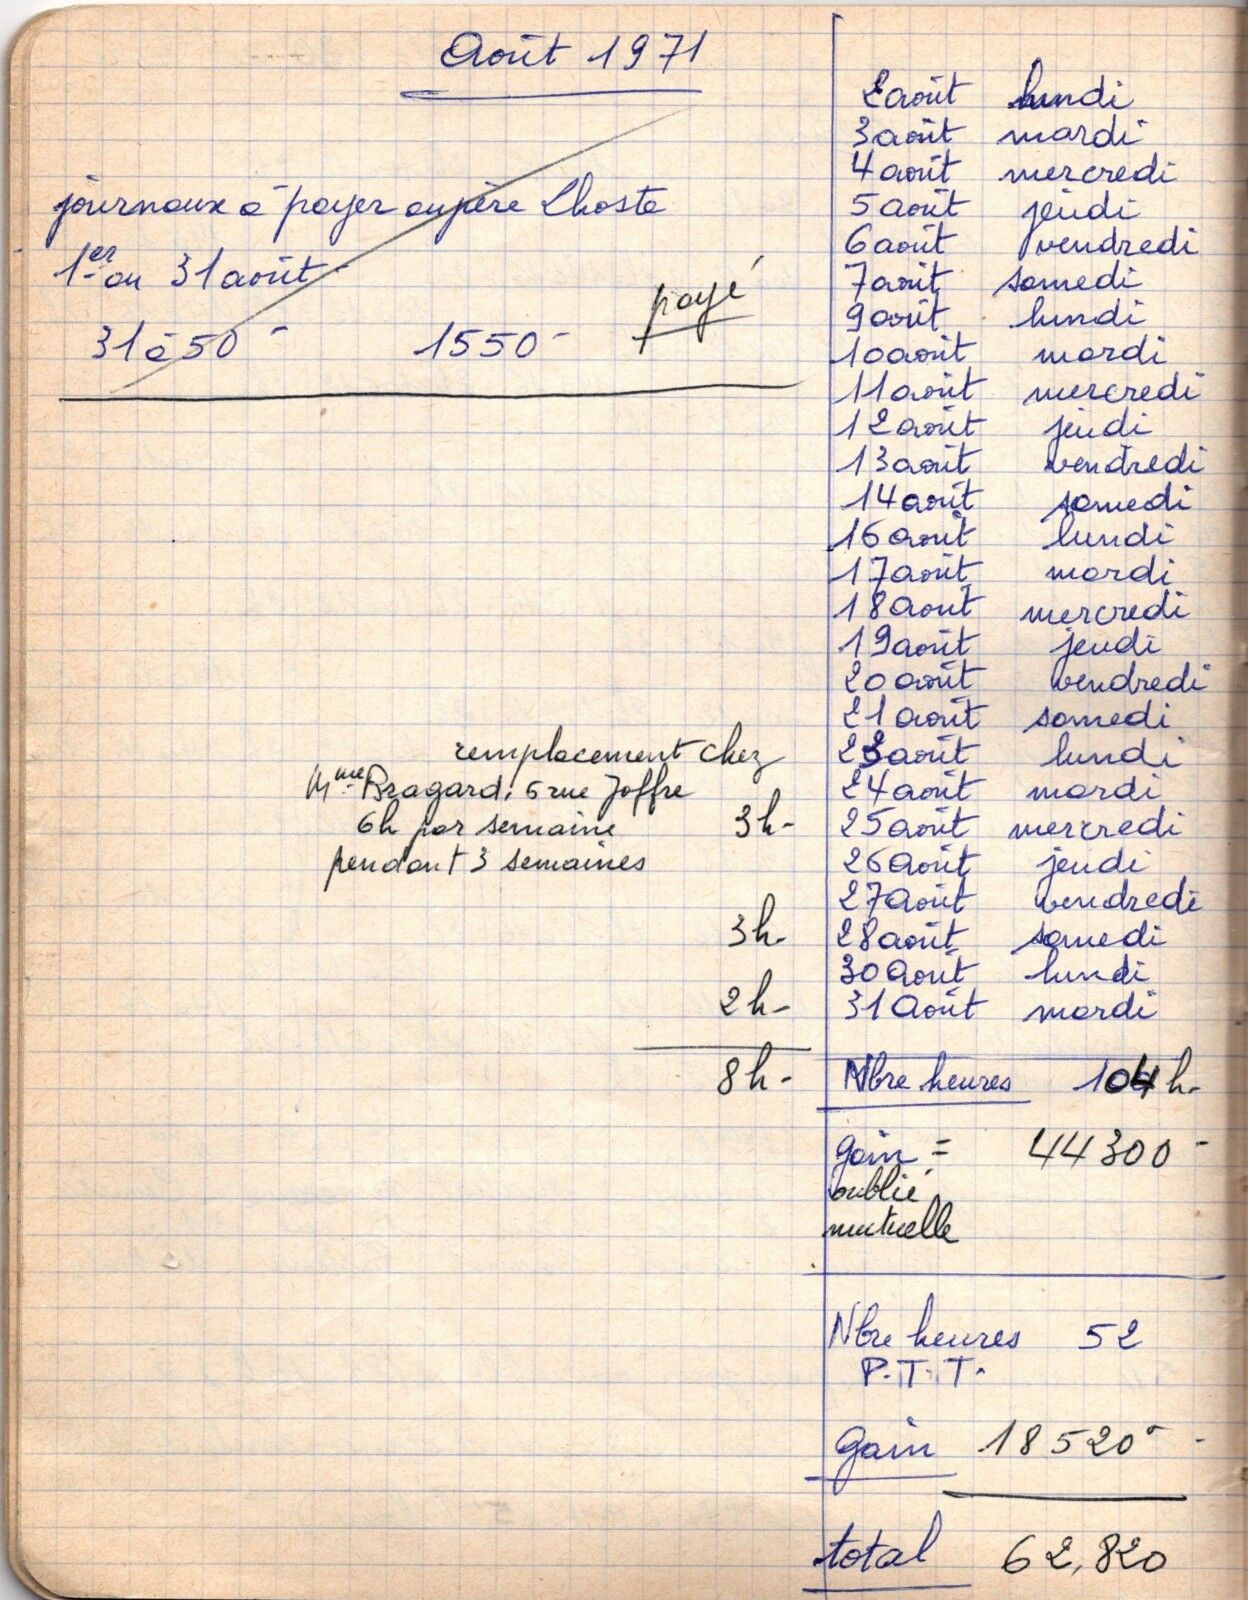 Août 1971
journaux à payer au père Lhoste
1er au 31 août
31 à 50 - 1550 - payé
remplacement chez
Mme Bragard, 6 rue Joffre
6h par semaine
pendant 3 semaines
3h-
3h-
2h-
8h-
2 août lundi
3 août mardi
4 août mercredi
5 août jeudi
6 août vendredi
7 août samedi
9 août lundi
10 août mardi
11 août mercredi
12 août jeudi
13 août vendredi
14 août samedi
16 août lundi
17 août mardi
18 août mercredi
19 août jeudi
20 août vendredi
21 août samedi
23 août lundi
24 août mardi
25 août mercredi
26 août jeudi
27 août vendredi
28 août samedi
30 août lundi
31 août mardi
Nbre heures 104 h-
gain = 44300 -
oublié
mutuelle
Nbre heures 52
P.T.T.
gain 18520 -
total 62,820